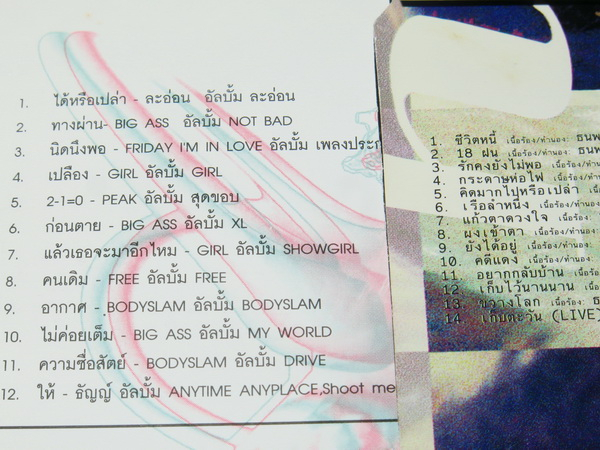 1. ได้หรือเปล่า - ละอ่อน อัลบั้ม ละอ่อน
2. ทางผ่าน- BIG ASS อัลบั้ม NOT BAD
3. นิดนึงพอ - FRIDAY I'M IN LOVE อัลบั้ม เพลงประก
4. เปลือง - GIRL อัลบั้ม GIRL
5. 2-1=0 - PEAK อัลบั้ม สุดขอบ
6. ก่อนตาย - BIG ASS อัลบั้ม XL
7. แล้วเธอจะมาอีกไหม - GIRL อัลบั้ม SHOWGIRL
8. คนเดิม - FREE อัลบั้ม FREE
9. อากาศ - BODYSLAM อัลบั้ม BODYSLAM
10. ไม่ค่อยเต็ม - BIG ASS อัลบั้ม MY WORLD
11. ความซื่อสัตย์ - BODYSLAM อัลบั้ม DRIVE
12. ให้ - ธัญญ์ อัลบั้ม ANYTIME ANYPLACE,Shoot me
1. ชีวิตหนี้ เนื้อร้อง/ทำนอง: ธนพ
2. 18 ฝน เนื้อร้อง/ทำนอง: ธนพ
3. รักคงยังไม่พอ เนื้อร้อง/ทำนอง:
4. กระดาษห่อไฟ เนื้อร้อง/ทำนอง:
5. คิดมากไปหรือเปล่า เนื้อร้อง
6. เรือลำหนึ่ง เนื้อร้อง/ทำนอง:
7. แก้วตาดวงใจ เนื้อร้อง
8. ผงเข้าตา เนื้อร้อง/ทำนอง:
9. ยังได้อยู่ เนื้อร้อง/ทำนอง:
10. คดีแดง เนื้อร้อง/ทำนอง:
11. อยากกลับบ้าน เนื้อร้อง
12. เก็บไว้นานนาน เนื้อร้อง
13. ขวางโลก เนื้อร้อง:
14. เก็บตะวัน (LIVE)